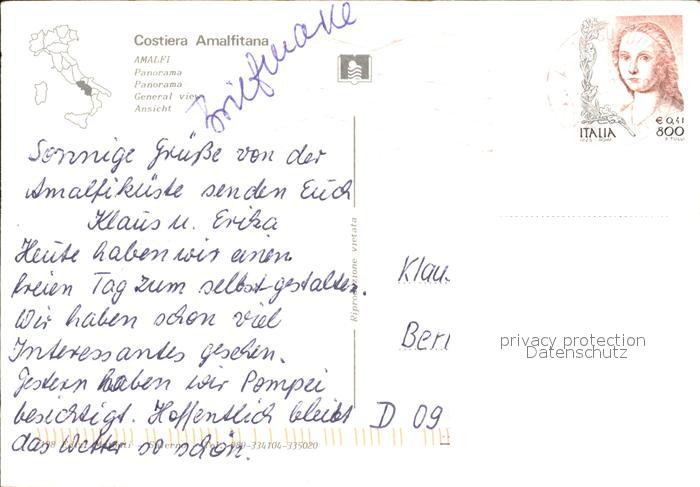 Costiera Amalfitana
AMALFI
Panorama
Panorama
General view
Ansicht
Briefmarke
ITALIA
€ 0,41
800
Sonnige Grüße von der
Amalfiküste senden Euch
Klaus u. Erika
Heute haben wir einen
freien Tag zum selbst gestalten.
Wir haben schon viel
Interessantes gesehen.
Gestern haben wir Pompei
besichtigt. Hoffentlich bleibt
das Wetter so schön.
Riproduzione vietata
Klau
Berl
D 09
privacy protection
Datenschutz
089-334104-335020